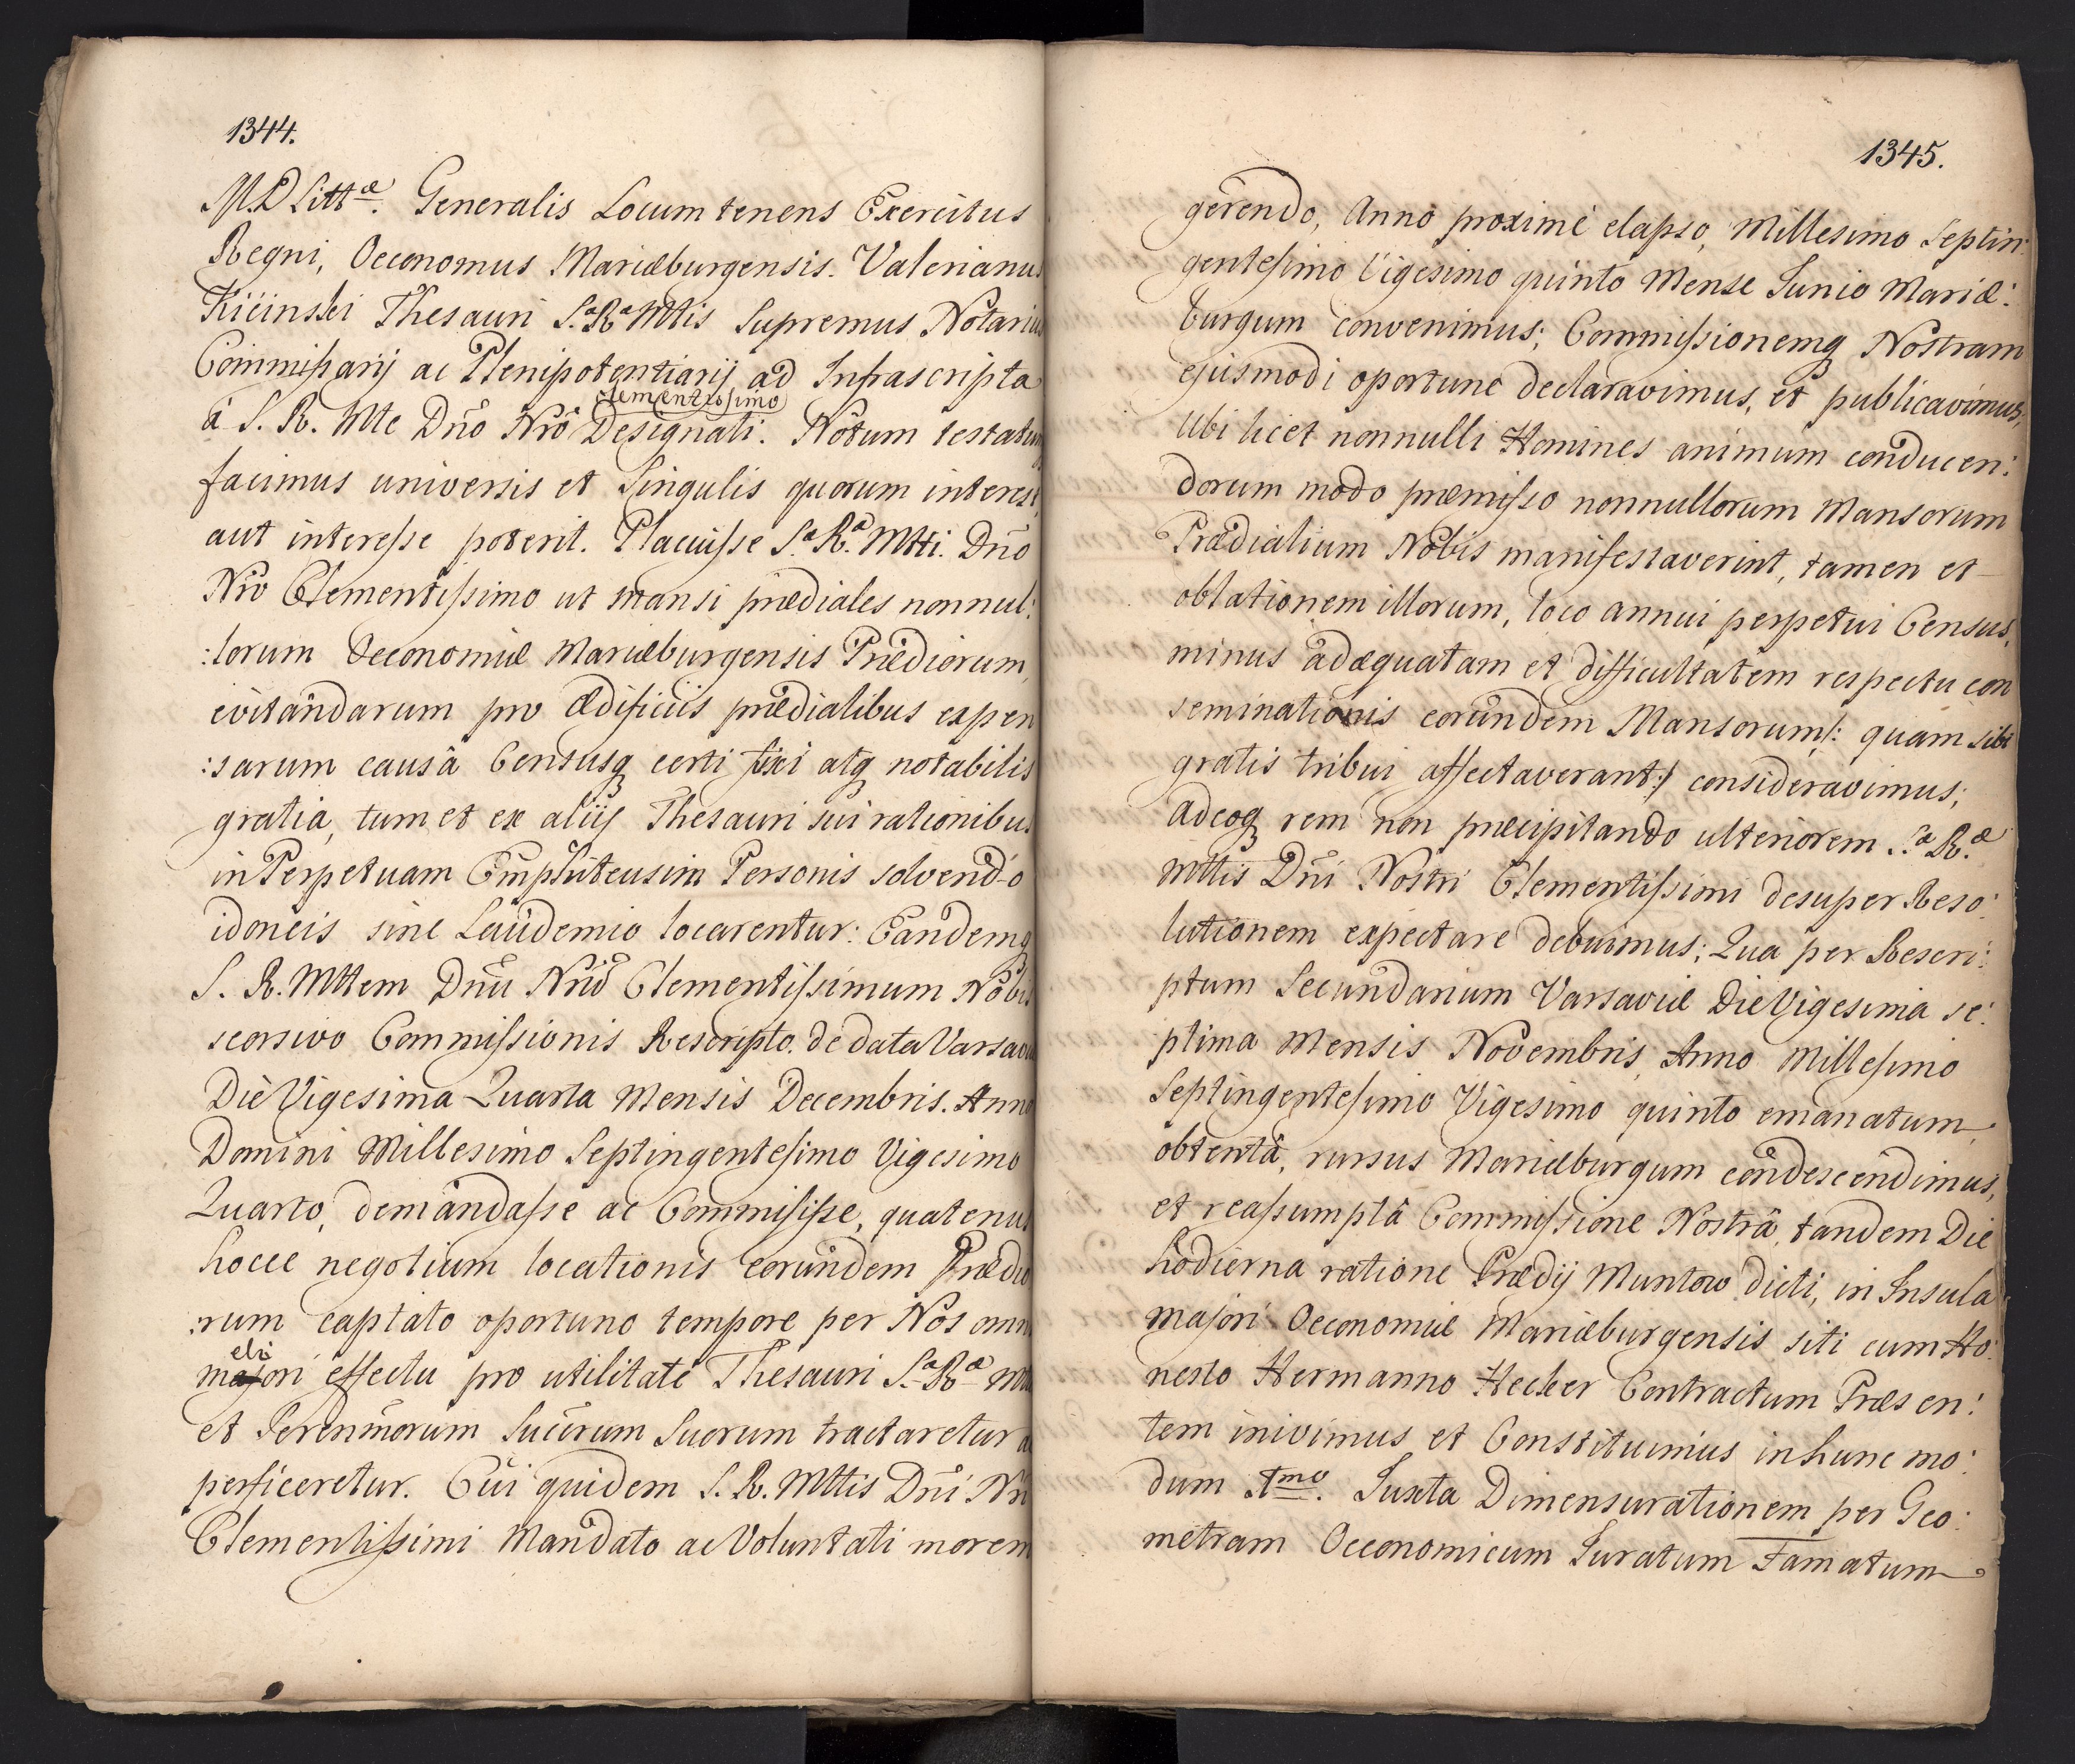 1344.
M.D Littæ. Generalis Locumtenens Exercitus
Regni, Oeconomus Mariæburgensis. Valerianus
Kicinski Thesauri S.a R.a Mttis Supremus Notarius
Commissarij ac Plenipotentiarij, ad Infrascripta
clementissimo
à S. R. Mte Dno Nro Designati. Notum testatum
facimus universis et Singulis quorum interest,
aut interesse poterit. Placuisse S.a R.a Mtti. Dno
Nro Clementissimo ut mansi prædiales nonnul:
:lorum Oeconomiæ Mariæburgensis Prædiorum,
evitandarum pro ædificiis prædialibus expen
:sarum causâ Censusq certi fixi atq notabilis
gratia, tum et ex aliis Thesauri sui rationibus
in Perpetuam Emphiteusim Personis solvendo
idoneis sine Laudemio locarentur: Eandemq
S. R. Mttem Dnu Nru Clementissimum Nobis
seorsivo Commissionis Rescripto. de data Varsaviæ
Die Vigesima Quarta Mensis Decembris. Anno
Domini Millesimo Septingentesimo Vigesimo
Quarto, demandasse ac Commisisse, quatenus
hocce negotium locationis eorundem Prædio
:rum captato oportuno tempore per Nos omni
eli
majori effectu pro utilitate Thesauri S.a R.a Mttis
et Serenmorum Succrum Suorum tractaretur ac
perficeretur. Cui quidem S. R. Mttis Dni Nri
Clementissimi Mandato ac Voluntati morem
1345.
gerendo, Anno proximè elapso, Millesimo Septin:
gentesimo Vigesimo quinto Mense Junio Mariæ:
burgum convenimus; Commissionemq Nostram
ejusmodi oportunè declaravimus, et publicavimus,
Ubi licet nonnulli Homines animum conducen:
dorum modo præmisso nonnullorum Mansorum
Prædialium Nobis manifestaverint, tamen et
oblationem illorum, loco annui perpetui Census,
minus adæquatam et difficultatem respectu con
seminationis eorundem Mansorum /: quam sibi
gratis tribui affectaverant :/ consideravimus;
adeoq rem non præcipitando ulteriorem S.æ R.æ
Mttis Dni Nostri Clementissimi desuper Reso:
lutionem expectare debuimus; Qua per Rescri:
ptum Secundarium Varsaviæ Die Vigesima se:
ptima Mensis Novembris, Anno Millesimo
Septingentesimo Vigesimo quinto emanatum,
obtentâ, rursus Mariæburgum condescendimus,
et reassumptâ Commissione Nostrâ, tandem Die
hodierna ratione Prædij Muntow dicti, in Insula
majori Oeconomiæ Mariæburgensis siti cum Ho:
nesto Hermanno Hecker Contractum Præsen:
tem inivimus et Constituimus in hunc mo:
dum 1mo. Juxta Dimensurationem per Geo:
metram Oeconomicum Juratum Famatum